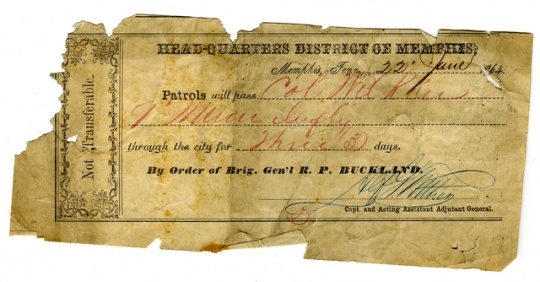 Not Transferable.
HEAD-QUARTERS DISTRICT OF MEMPHIS,
Memphis, Tenn, 22 June 1864
Patrols will pass Col.
through the city for Three (3) days.
By Order of Brig. Gen'l R. P. BUCKLAND.
Capt and Acting Assistant Adjutant General.